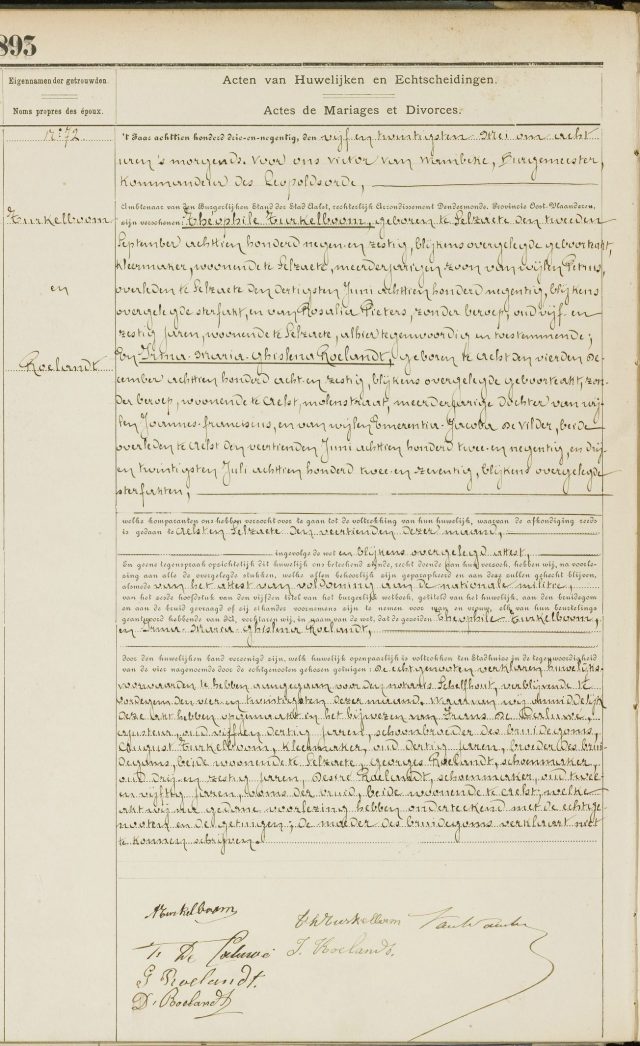 893
Eigennamen der getrouwden.
Noms propres des époux.
Acten van Huwelijken en Echtscheidingen.
Actes de Mariages et Divorces.
N:º 72.
Turkelboom
en
Roelandt
't Jaar achttien honderd drie-en-negentig, den vijf en twintigsten Mei om acht
uren 's morgends. Voor ons Victor Van Wambeke, Burgemeester,
Kommandeur des Leopoldsorde,
Ambtenaar van den Burgerlijken Stand der Stad Aalst, rechterlijk Arrondissement Dendermonde, Provincie Oost-Vlaanderen,
zijn verschenen: Théophile Turkelboom, geboren te Selzaete den tweeden
September achttien honderd negen en zestig, blijkens overgelegde geboortakt,
kleermaker, woonende te Selzaete, meerderjarigen zoon van wijlen Petrus,
overleden te Selzaete den dertigsten Juni achttien honderd negentig, blijkens
overgelegde sterfakt, en van Rosalia Pieters, zonder beroep, oud vijf en
zestig jaren, woonende te Selzaete, alhier tegenwoordig en toestemmende;
En Irma-Maria-Ghislena Roelandt, geboren te Aelst den vierden De-
cember achttien honderd acht en zestig, blijkens overgelegde geboortakt, zon-
der beroep, woonende te Aelst, Molenstraat, meerderjarige dochter van wij-
len Joannes-Franciscus, en van wijlen Emerentia-Jacoba De Vilder, beide
overleden te Aelst den veertienden Juni achttien honderd twee-en negentig, en drij
en twintigsten Juli achttien honderd twee en zeventig, blijkens overgelegde
sterfakten;
welke komparanten ons hebben verzocht over te gaan tot de voltrekking van hun huwelijk, waarvan de afkondiging reeds
is gedaan te Aelst en Selzaete den veertienden dezer maand,
ingevolge de wet en blijkens overgelegd attest,
En geene tegenspraak opzichtelijk dit huwelijk ons beteekend zijnde, recht doende aan hun verzoek, hebben wij, na voorle-
zing aan alle de overgelegde stukken, welke allen behoorlijk zijn geparapheerd en aan deze zullen gehecht blijven,
alsmede van het attest van voldoening aan de nationale militie,
van het zesde hoofdstuk van den vijfden titel van het burgerlijk wetboek, getiteld van het huwelijk, aan den bruidegom
en aan de bruid gevraagd of zij elkander voornemens zijn te nemen voor man en vrouw, elk van hun beurtelings
geantwoord hebbende van JA, verklaren wij, in naam van de wet, dat de gezeiden Théophile Turkelboom,
en Irma-Maria-Ghislena Roelandt,
door den huwelijken band vereenigd zijn, welk huwelijk openpaarlijk is voltrokken ten Stadhuize in de tegenwoordigheid
van de vier nagenoemde door de echtgenooten gekozen getuigen: De echtgenooten verklaren huwelijks-
voorwaarden te hebben aangegaan voor den notaris Schelfhout, verblijvende te
den vier en twintigsten dezer maand. Waarvan wij onmiddelijk
deze akt hebben opgemaakt en het bijwezen van Frans De Caluwé,
oud vijf en dertig jaren, schoonbroeder des bruidegoms,
August Turkelboom, kleermaker, oud dertig jaren, broeder des brui-
degoms, beide woonende te Selzaete, Georges Roelandt, schoenmaker,
oud drij en zestig jaren, Desiré Roelandt, schoenmaker, oud twee-
en vijftig jaren, ooms der bruid, beide woonende te Aelst; welke
akt wij na gedane voorlezing hebben onderteekend met de echtge-
nooten en de getuigen; de moeder des bruidegoms verklaart niet
te konnen schrijven.
A Turkelboom
Th Turkelboom
Van Wambeke
De Caluwé
I. Roelandt.
G Roelandt.
D. Roelandt